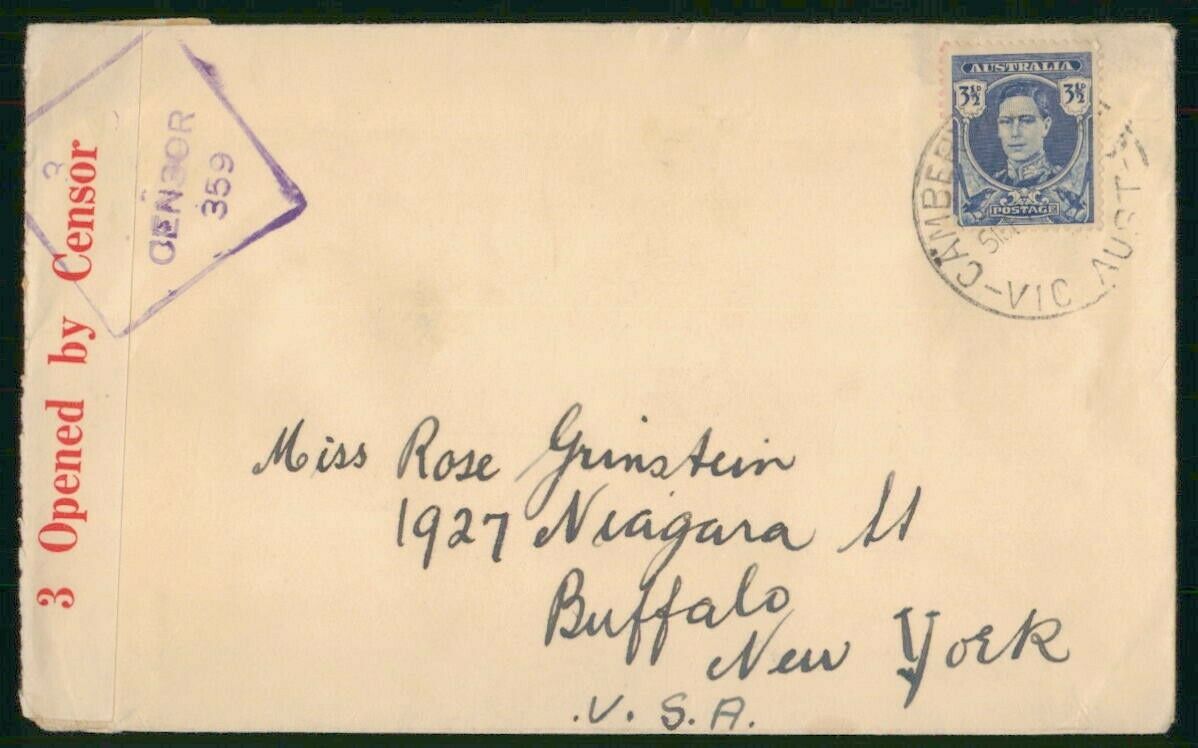 3 Opened by Censor
3
CENSOR
359
AUSTRALIA
3½D 3½D
POSTAGE
VIC AUST
Miss Rose Grinstein
1927 Niagara St
Buffalo
New York
U. S. A.